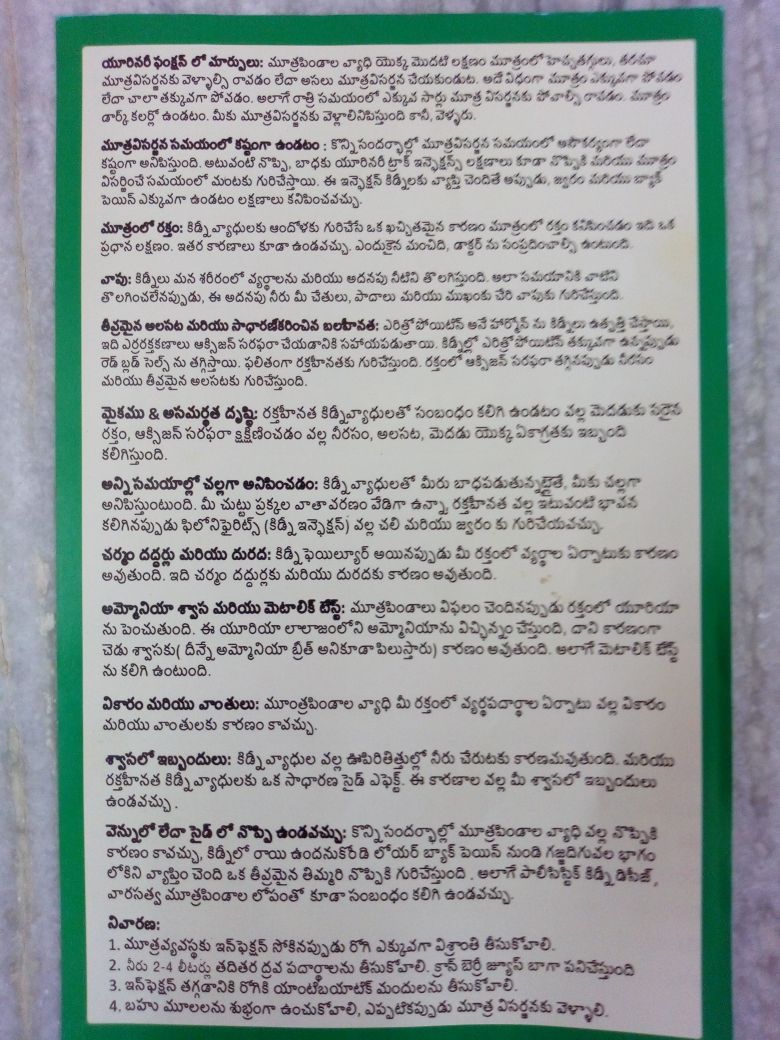 యూరినరీ ఫంక్షన్ లో మార్పులు: మూత్రపిండాల వ్యాధి యొక్క మొదటి లక్షణం మూత్రంలో హెచ్చుతగ్గులు, తరచూ
మూత్రవిసర్జనకు వెళ్ళాల్సి రావడం లేదా అసలు మూత్రవిసర్జన చేయకుండుట. అదే విధంగా మూత్రం ఎక్కువగా పోవడం
లేదా చాలా తక్కువగా పోవడం. అలాగే రాత్రి సమయంలో ఎక్కువ సార్లు మూత్ర విసర్జనకు పోవాల్సి రావడం. మూత్రం
డార్క్ కలర్లో ఉండటం. మీకు మూత్రవిసర్జనకు వెళ్లాలినిపిస్తుంది కానీ, వెళ్ళరు.
మూత్రవిసర్జన సమయంలో కష్టంగా ఉండటం : కొన్ని సందర్భాల్లో మూత్రవిసర్జన సమయంలో అసౌకర్యంగా లేదా
కష్టంగా అనిపిస్తుంది. అటువంటి నొప్పి, బాధకు యూరినరీ ట్రాక్ ఇన్ఫెక్షన్స్ లక్షణాలు కూడా నొప్పికి మరియు మూత్రం
విసర్జించే సమయంలో మంటకు గురిచేస్తాయి. ఈ ఇన్ఫెక్షన్ కిడ్నీలకు వ్యాప్తి చెందితే అప్పుడు, జ్వరం మరియు బ్యాక్
పెయిన్ ఎక్కువగా ఉండటం లక్షణాలు కనిపించవచ్చు.
మూత్రంలో రక్తం: కిడ్నీ వ్యాధులకు ఆందోళకు గురిచేసే ఒక ఖచ్చితమైన కారణం మూత్రంలో రక్తం కనిపించడం ఇది ఒక
ప్రధాన లక్షణం. ఇతర కారణాలు కూడా ఉండవచ్చు. ఎందుకైన మంచిది, డాక్టర్ ను సంప్రదించాల్సి ఉంటుంది.
వాపు: కిడ్నీలు మన శరీరంలో వ్యర్థాలను మరియు అదనపు నీటిని తొలగిస్తుంది. అలా సమయానికి వాటిని
తొలగించలేనప్పుడు, ఈ అదనపు నీరు మీ చేతులు, పాదాలు మరియు ముఖంకు చేరి వాపుకు గురిచేస్తుంది.
తీవ్రమైన అలసట మరియు సాధారణీకరించిన బలహీనత: ఎరిత్రోపోయిటిన్ అనే హార్మోన్ ను కిడ్నీలు ఉత్పత్తి చేస్తాయి,
ఇది ఎర్రరక్తకణాలు ఆక్సిజన్ సరఫరా చేయడానికి సహాయపడుతాయి. కిడ్నీల్లో ఎరిత్రోపోయిటిన్ తక్కువగా ఉన్నప్పుడు
రెడ్ బ్లడ్ సెల్స్ ను తగ్గిస్తాయి. ఫలితంగా రక్తహీనతకు గురిచేస్తుంది. రక్తంలో ఆక్సిజన్ సరఫరా తగ్గినప్పుడు నీరసం
మరియు తీవ్రమైన అలసటకు గురిచేస్తుంది.
మైకము & అసమర్థత దృష్టి: రక్తహీనత కిడ్నీవ్యాధులతో సంబంధం కలిగి ఉండటం వల్ల మెదడుకు సరైన
రక్తం, ఆక్సిజన్ సరఫరా క్షక్షీణించడం వల్ల నీరసం, అలసట, మెదడు యొక్క ఏకాగ్రతకు ఇబ్బంది
కలిగిస్తుంది.
అన్ని సమయాల్లో చల్లగా అనిపించడం: కిడ్నీ వ్యాధులతో మీరు బాధపడుతున్నట్లైతే, మీకు చల్లగా
అనిపిస్తుంటుంది. మీ చుట్టు ప్రక్కల వాతావరణం వేడిగా ఉన్నా, రక్తహీనత వల్ల ఇటువంటి భావన
కలిగినప్పుడు ఫిలోనిఫైరిట్స్ (కిడ్నీ ఇన్ఫెక్షన్) వల్ల చలి మరియు జ్వరం కు గురిచేయవచ్చు.
చర్మం దద్దర్లు మరియు దురద: కిడ్నీ ఫెయిల్యూర్ అయినప్పుడు మీ రక్తంలో వ్యర్థాల ఏర్పాటుకు కారణం
అవుతుంది. ఇది చర్మం దద్దుర్లకు మరియు దురదకు కారణం అవుతుంది.
అమ్మోనియా శ్వాస మరియు మెటాలిక్ టేస్ట్: మూత్రపిండాలు విఫలం చెందినప్పుడు రక్తంలో యూరియా
ను పెంచుతుంది. ఈ యూరియా లాలాజంలోని అమ్మోనియాను విచ్ఛిన్నం చేస్తుంది, దాని కారణంగా
చెడు శ్వాసకు( దీన్నే అమ్మోనియా బ్రీత్ అనికూడా పిలుస్తారు) కారణం అవుతుంది. అలాగే మెటాలిక్ టేస్ట్
ను కలిగి ఉంటుంది.
వికారం మరియు వాంతులు: మూంత్రపిండాల వ్యాధి మీ రక్తంలో వ్యర్థపదార్థాల ఏర్పాటు వల్ల వికారం
మరియు వాంతులకు కారణం కావచ్చు.
శ్వాసలో ఇబ్బందులు: కిడ్నీ వ్యాధుల వల్ల ఊపిరితిత్తుల్లో నీరు చేరుటకు కారణమవుతుంది. మరియు
రక్తహీనత కిడ్నీ వ్యాధులకు ఒక సాధారణ సైడ్ ఎఫెక్ట్. ఈ కారణాల వల్ల మీ శ్వాసలో ఇబ్బందులు
ఉండవచ్చు .
వెన్నులో లేదా సైడ్ లో నొప్పి ఉండవచ్చు: కొన్ని సందర్భాల్లో మూత్రపిండాల వ్యాధి వల్ల నొప్పికి
కారణం కావచ్చు, కిడ్నీలో రాయి ఉందనుకోండి లోయర్ బ్యాక్ పెయిన్ నుండి గజ్జదిగువల భాగం
లోకిని వ్యాప్తిం చెంది ఒక తీవ్రమైన తిమ్మరి నొప్పికి గురిచేస్తుంది . అలాగే పాలిసిస్టిక్ కిడ్నీ డిసీజ్ ,
వారసత్వ మూత్రపిండాల లోపంతో కూడా సంబంధం కలిగి ఉండవచ్చు.
నివారణ:
1. మూత్రవ్యవస్థకు ఇన్ఫెక్షన్ సోకినప్పుడు రోగి ఎక్కువగా విశ్రాంతి తీసుకోవాలి.
2. నీరు 2-4 లీటర్లు తదితర ద్రవ పదార్థాలను తీసుకోవాలి. క్రాన్ బెర్రీ జ్యూస్ బాగా పనిచేస్తుంది
3. ఇన్ఫెక్షన్ తగ్గడానికి రోగికి యాంటిబయాటిక్ మందులను తీసుకోవాలి.
4. బహు మూలలను శుభ్రంగా ఉంచుకోవాలి, ఎప్పటికప్పుడు మూత్ర విసర్జనకు వెళ్ళాలి.